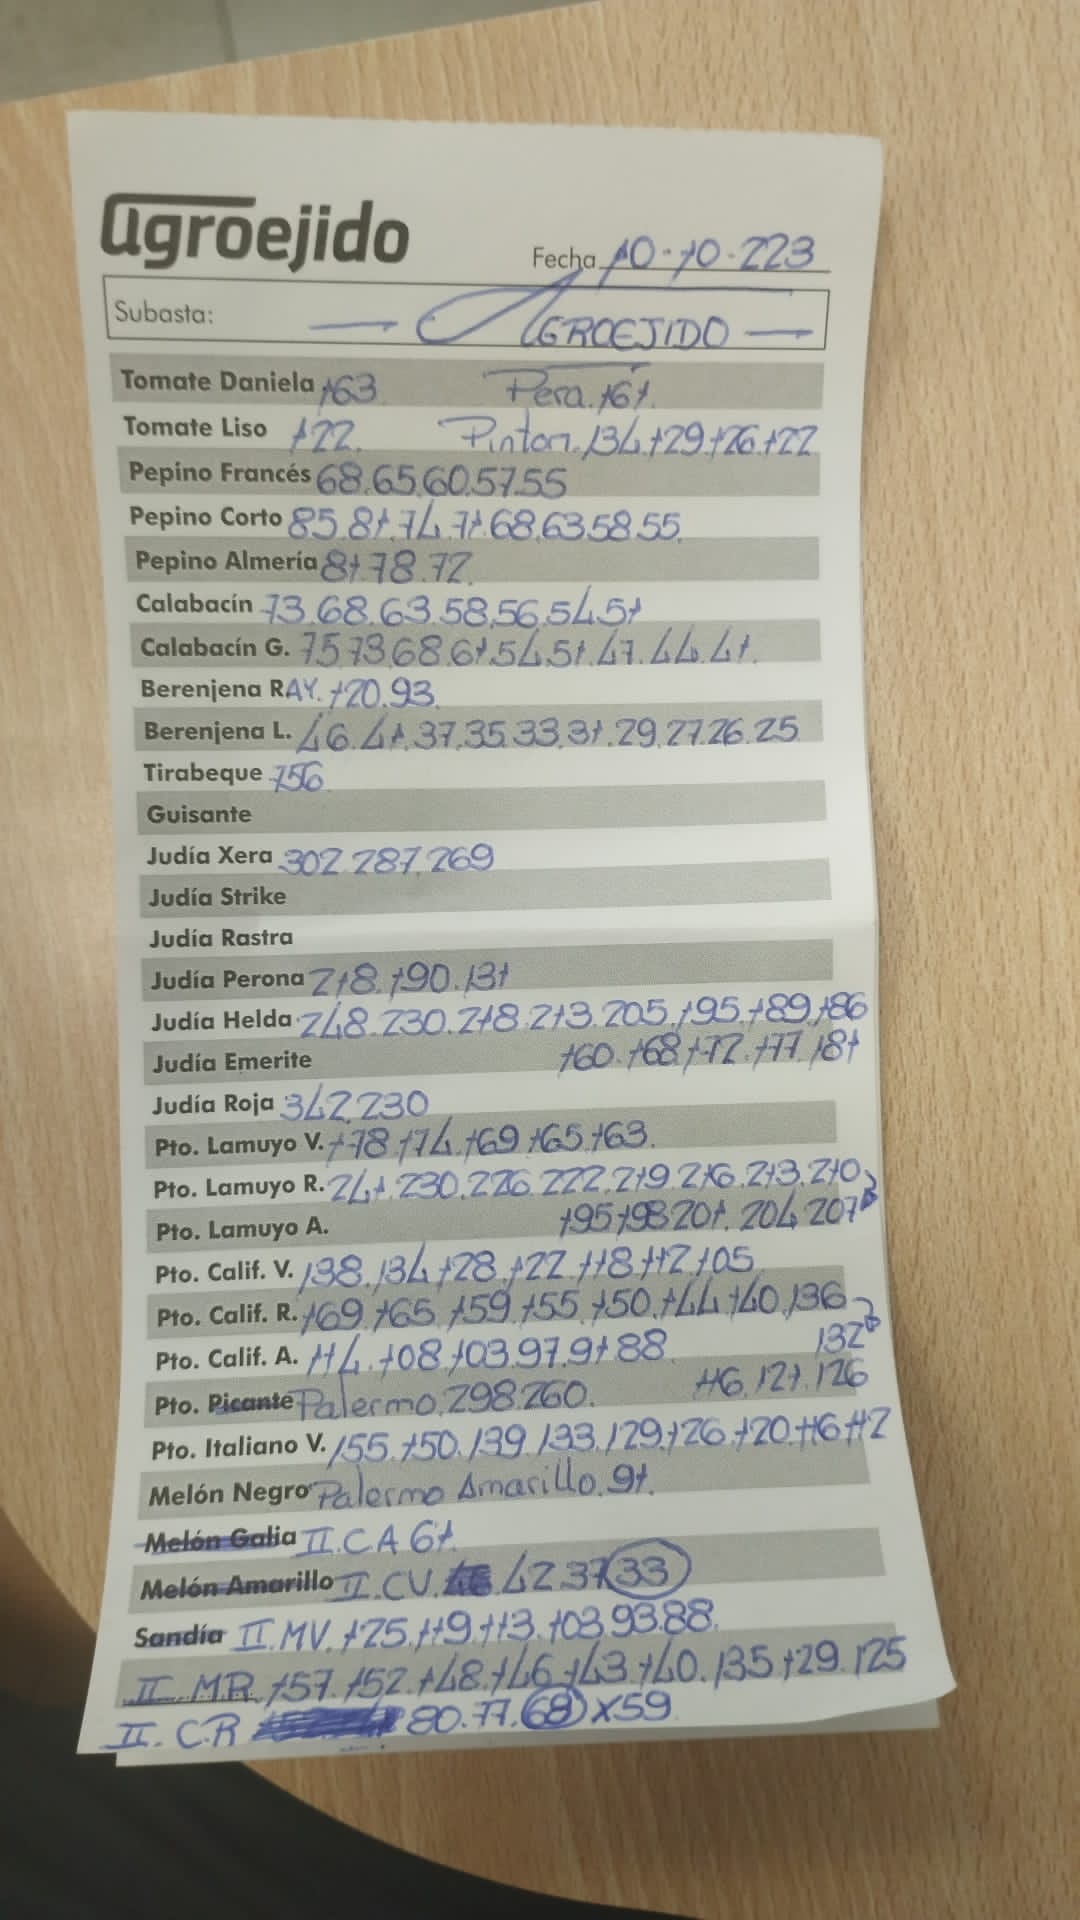 agroejido
Fecha 10-10-223
Subasta: — AGROEJIDO —
Tomate Daniela 163 Pera.161.
Tomate Liso 122. Pinton.134.129.126.122
Pepino Francés 68.65.60.57.55
Pepino Corto 85.81.74.71.68.63.58.55.
Pepino Almería 81.78.72.
Calabacín 73.68.63.58.56.54.51
Calabacín G. 75.73.68.61.54.51.47.44.41.
Berenjena RAY. 120.93.
Berenjena L. 46.41.37.35.33.31.29.27.26.25
Tirabeque 756
Guisante
Judía Xera 302.287.269
Judía Strike
Judía Rastra
Judía Perona 218.190.131
Judía Helda 248.230.218.213.205.195.189.186
Judía Emerite 160.168.172.177.181
Judía Roja 342.230
Pto. Lamuyo V. 178.174.169.165.163.
Pto. Lamuyo R. 241.230.226.222.219.216.213.210
Pto. Lamuyo A. 195.198.201.204.207
Pto. Calif. V. 138.134.128.122.118.112.105
Pto. Calif. R. 169.165.159.155.150.144.140.136
132
Pto. Calif. A. 114.108.103.97.91.88
116.121.126
Pto. Picante Palermo.298.260.
Pto. Italiano V. 155.150.139.133.129.126.120.116.112
Melón Negro Palermo Amarillo.91.
Melón Galia II.CA 61.
Melón Amarillo II.CV. 42.37.33
Sandía II.MV. 125.119.113.103.93.88.
II.MR. 157.152.148.146.143.140.135.129.125
II.CR 80.77.68 x59